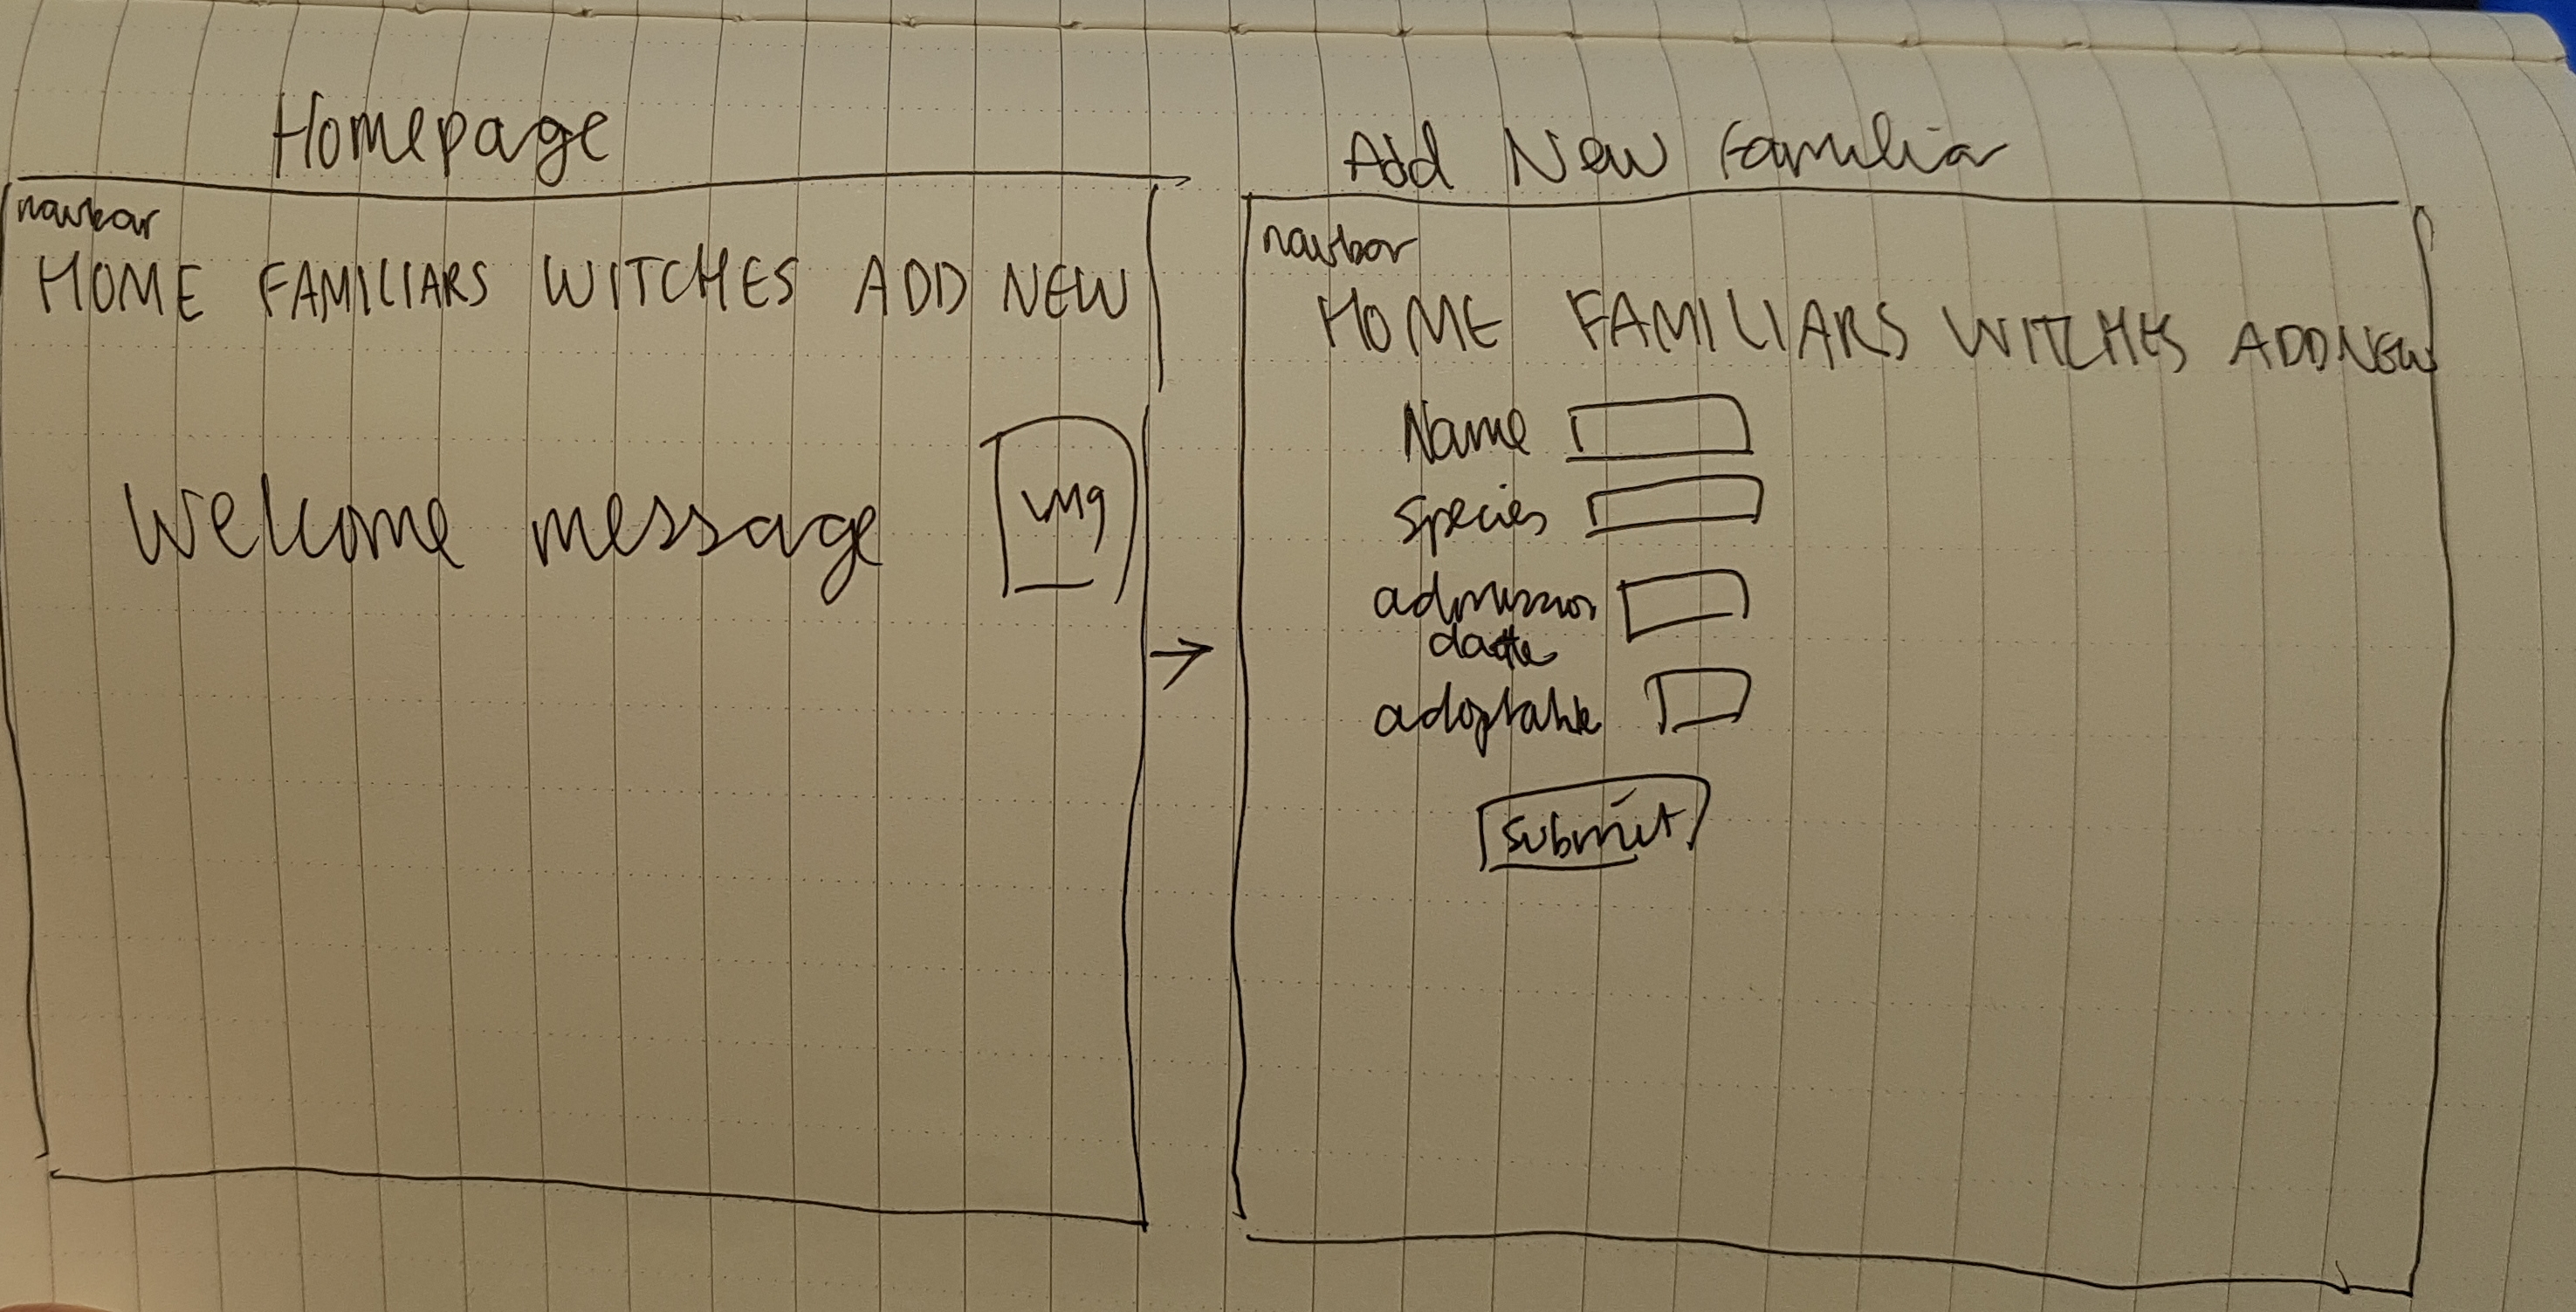 Homepage
navbar
HOME FAMILIARS WITCHES ADD NEW
Welcome message
img
Add New Familiar
navbar
HOME FAMILIARS WITCHES ADD NEW
Name
Species
admission
date
adoptable
submit